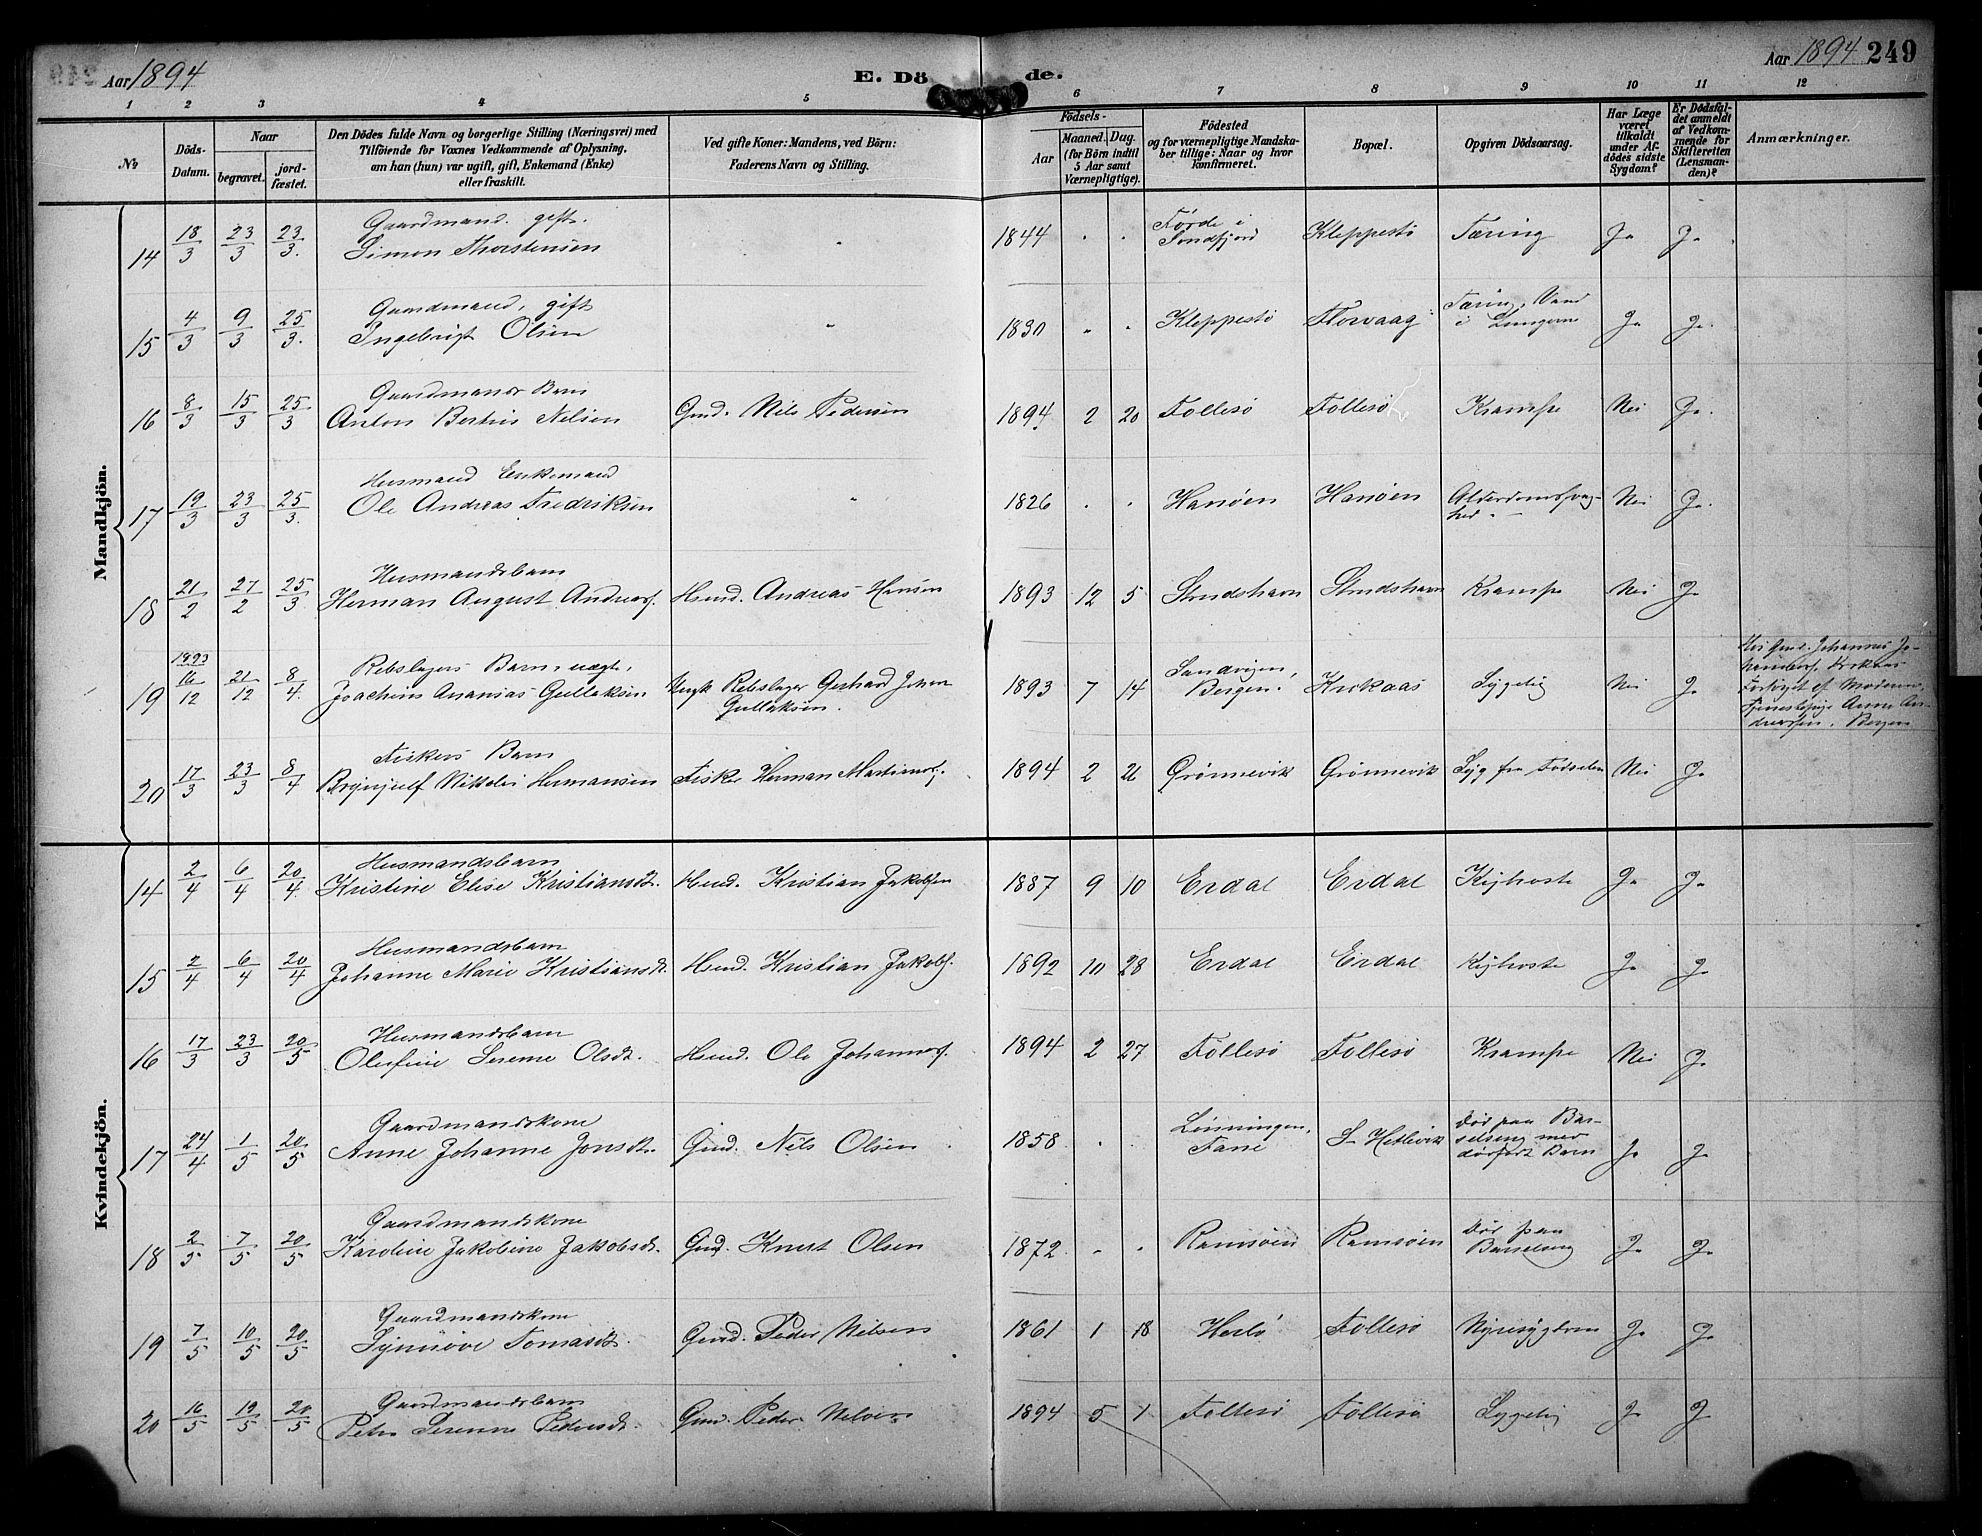 Aar 1894
E. Döde.
Aar 1894 249
1 2 3 4 5 6 7 8 9 10 11 12
No
Döds-Datum.
Naar
begravet.
jord-fæstet.
Den Dödes fulde Navn og borgerlige Stilling (Næringsvei) med
Tilföiende for Voxnes Vedkommende af Oplysning,
om han (hun) var ugift, gift, Enkemand (Enke)
eller fraskilt.
Ved gifte Koner: Mandens, ved Börn:
Faderens Navn og Stilling.
Födsels-
Aar
Maaned. Dag.
(for Börn indtil
5 Aar samt
Værnepligtige).
Födested
og for værnepligtige Mandska-
ber tillige: Naar og hvor
konfirmeret.
Bopæl.
Opgiven Dödsaarsag.
Har Læge
været
tilkaldt
under Af-
dödes sidste
Sygdom?
Er Dödsfal-
det anmeldt
af Vedkom-
mende for
Skifteretten
(Lensman-
den)?
Anmærkninger.
Mandkjön.
14 18/3 23/3 23/3. Gaardmand. gift.
Simon Thorstensen " 1844 " " Førde i Søndfjord Kleppestø Tæring Ja Ja
15 4/3 9/3 25/3. Gaardmand, gift
Ingebrigt Olsen " 1830 " " Kleppestø Florvaag Tæring, Vand i Lungerne Ja Ja.
16 8/3 15/3 25/3 Gaardmands Barn
Anton Bertin Nilsen Gmd. Nils Pedersen 1894 2 20 Follesø Follesø Krampe Nei Ja.
17 19/3 23/3 25/3. Husmand Enkemand
Ole Andreas Fredriksen " 1826 " " Hanøen Hanøen Alderdomssvag-
hed Nei Ja.
18 21/2 27/2 25/3 Husmandsbarn
Herman August Andreas. Hmd. Andreas Hansen 1893 12 5 Strudshavn Strudshavn Krampe Nei Ja
19 1893 16/12 21/12 8/4. Rebslagers Barn, uægt.
Joachim Ananias Gullaksen Ungk Rebslager Gerhard Johan
Gullaksen. 1893 7 14 Sandvigen,
Bergen. Krokaas Sygelig Nei Ja Hos Gmd. Johannes Jo-
hannesen, Krokaas
Forsørget af Moderen,
Tjenestepige Anne An-
dreassen, Bergen
20 17/3 23/3 8/4 Fiskers Barn
Brynjulf Nikolai Hermansen Fisker Herman Martinus. 1894 2 26 Grønnevik Grønnevik Syg fra Fødselen Nei Ja
Kvindekjön.
14 2/4 6/4 20/4. Husmandsbarn
Kristine Elise Kristiansdt. Hmd. Kristian Jakobsen 1887 9 10 Erdal Erdal Kighoste Ja Ja
15 2/4 6/4 20/4 Husmandsbarn
Johanne Marie Kristiansdt. Hmd. Kristian Jakobs. 1892 10 28 Erdal Erdal Kighoste Ja Ja
16 17/3 23/3 20/5 Husmandsbarn
Olufine Serene Olsdt. Hmd. Ole Johannes. 1894 2 27 Follesø Follesø Krampe Nei Ja
17 24/4 1/5 20/5 Gaardmandskone
Anne Johanne Jonsdt. Gmd. Nils Olsen 1858 " " Lønningen,
Fane S- Hetlevik Død paa Bar-
selseng med
dødfødt Barn Ja Ja
18 2/5 7/5 20/5 Gaardmandskone
Karoline Jakobine Jakobsdt. Gmd. Knut Olsen 1872 " " Ramsøen Ramsøen Død paa
Barselseng Ja Ja
19 7/5 10/5 20/5 Gaardmandskone
Synnøve Tomasdt. Gmd. Peder Nilsen 1861 1 18 Herlø Follesø Nyresygdom Ja Ja
20 16/5 19/5 20/5 Gaardmandsbarn
Petra Serenne Pedersdt. Gmd. Peder Nilsen 1894 5 1 Follesø Follesø Sygelig Ja Ja